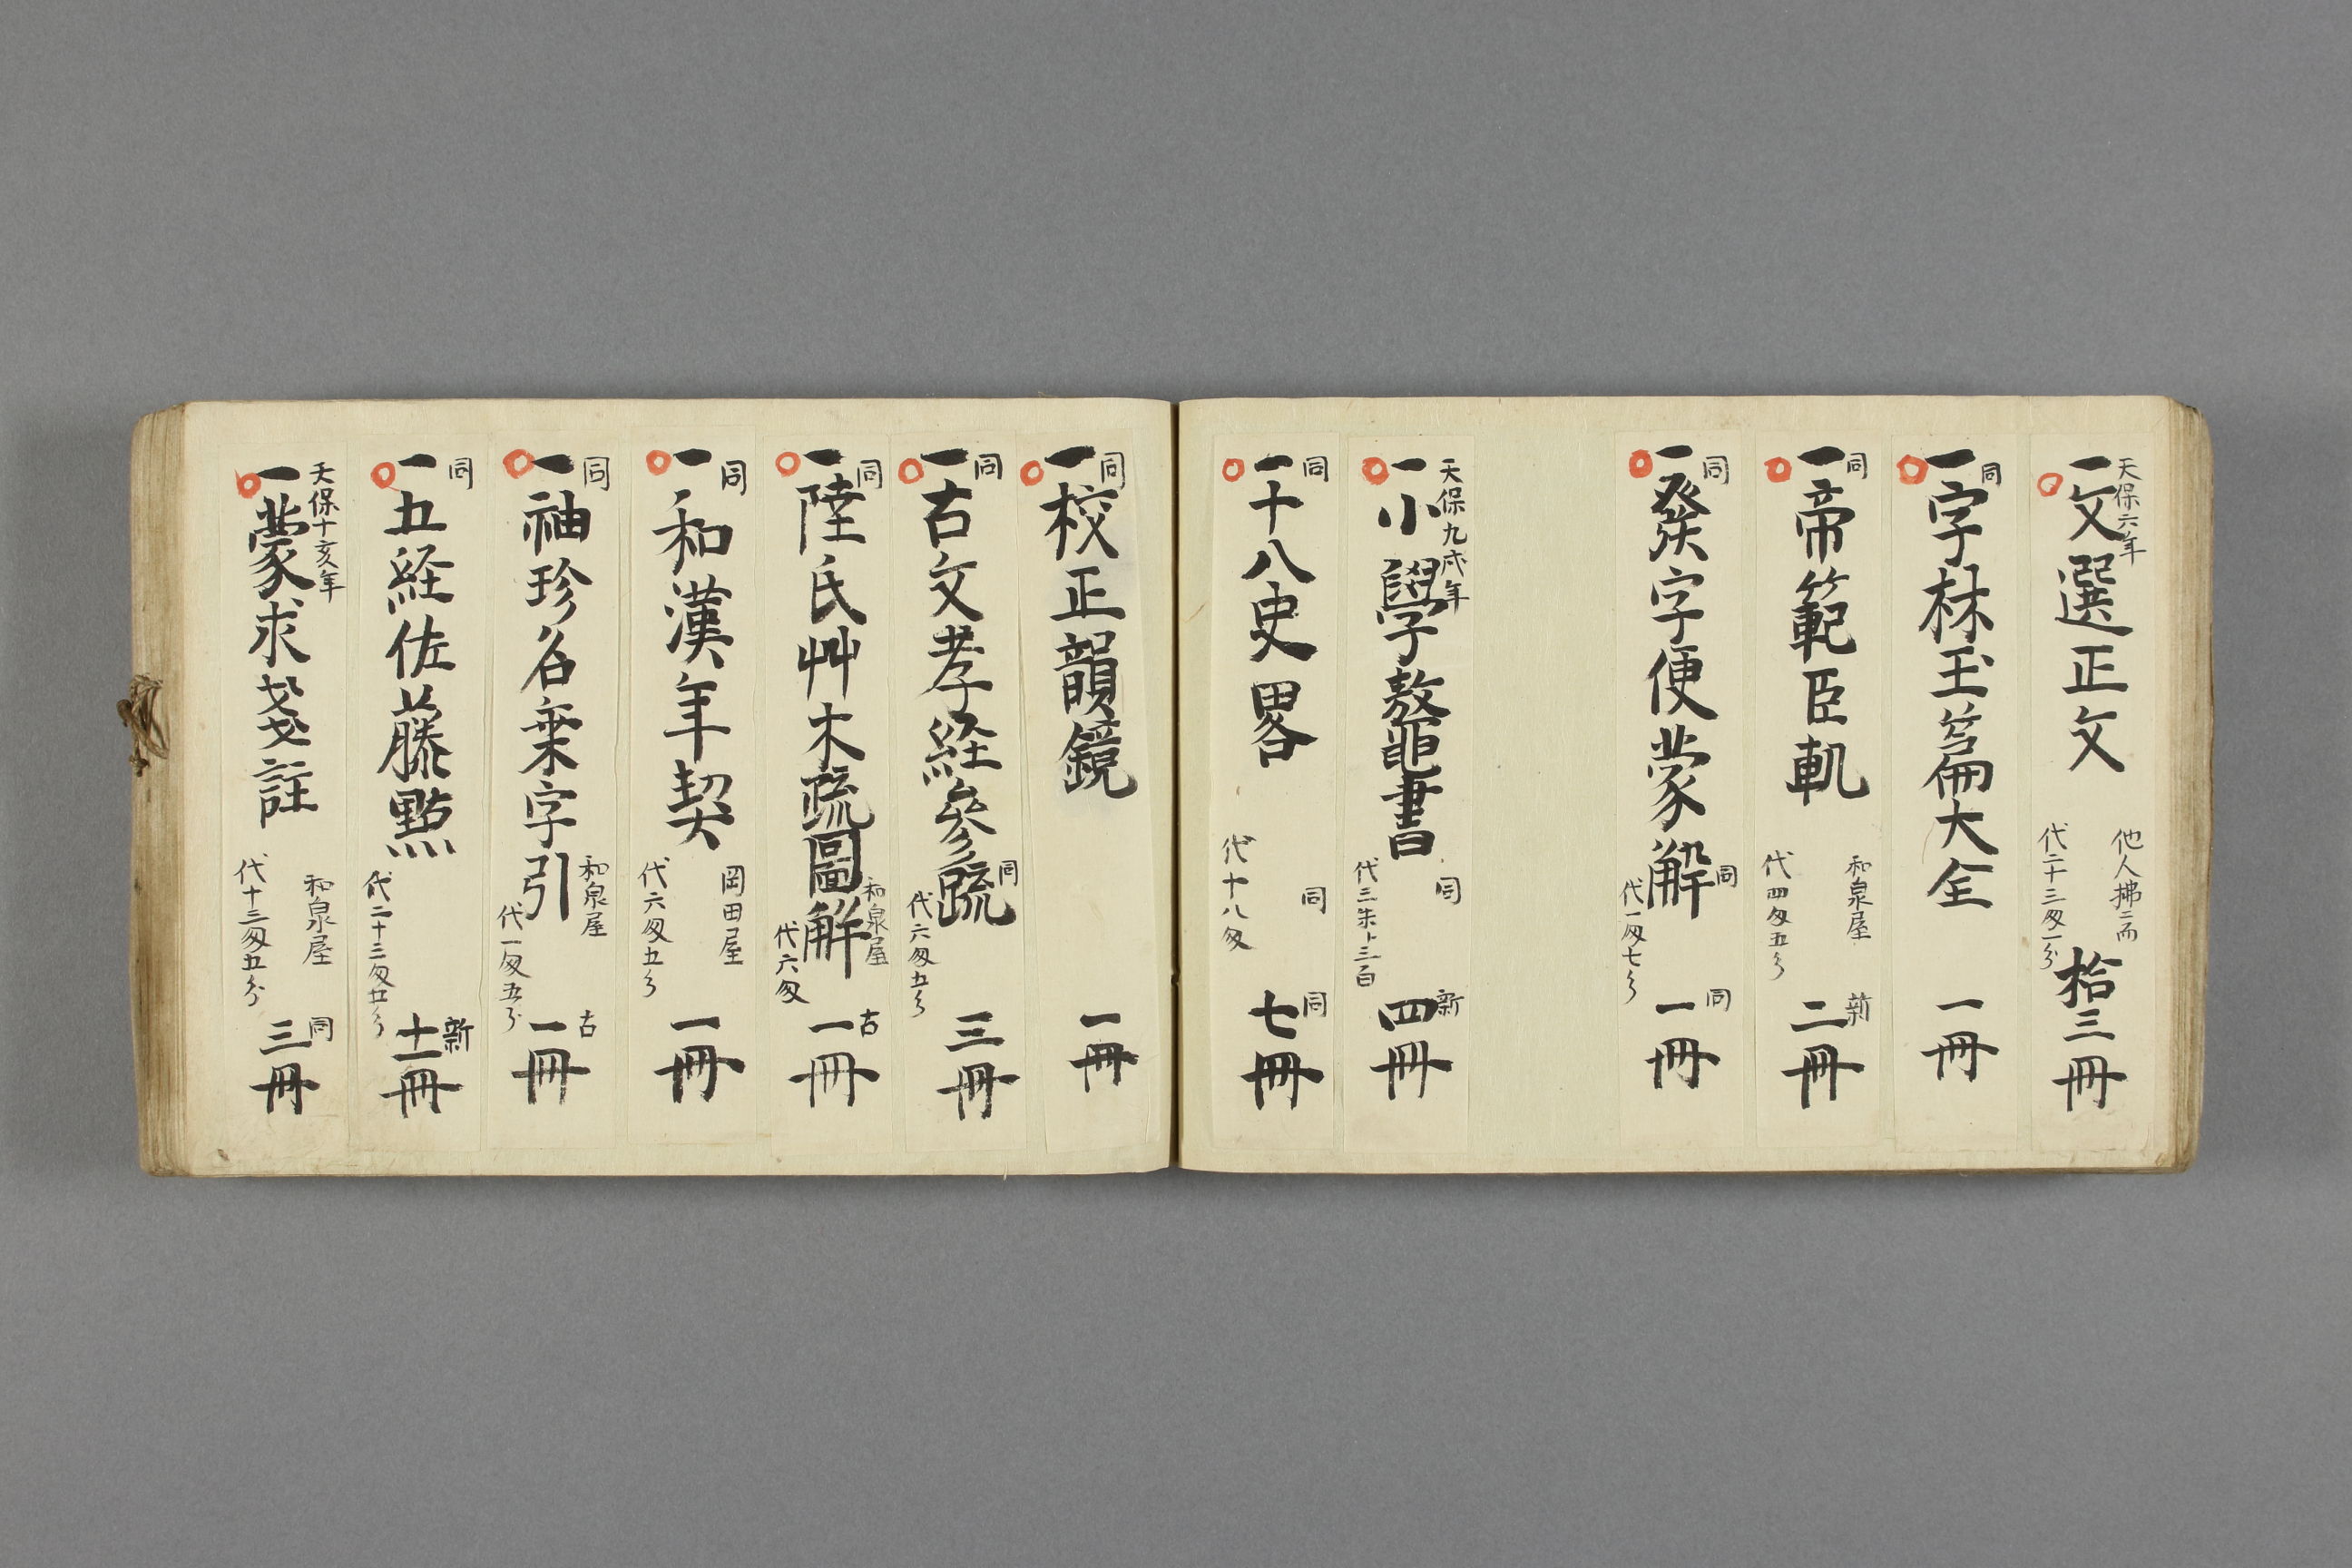 天保六年
一文選正文
他人拂ニ而
代二十三匁一分
拾三冊
同
一字林玉篇大全
一冊
同
一帝範臣軌
和泉屋
代四匁五分
新
二冊
同
一發字便蒙解
同
代一匁七分
同
一冊
天保九戌年
一小學鼇書
同
代三朱ト三百
新
四冊
同
一十八史畧
同
代十八匁
同
七冊
同
一校正韻鏡
一冊
同
一古文孝経參疏
同
代六匁五分
三冊
同
一陸氏艸木疏圖解
和泉屋
代六匁
古
一冊
同
一和漢年契
岡田屋
代六匁五分
一冊
同
一袖珍名乗字引
和泉屋
代一匁五分
古
一冊
同
一五経佐藤點
代二十三匁五分
新
十一冊
天保十亥年
一蒙求箋註
和泉屋
代十三匁五分
同
三冊